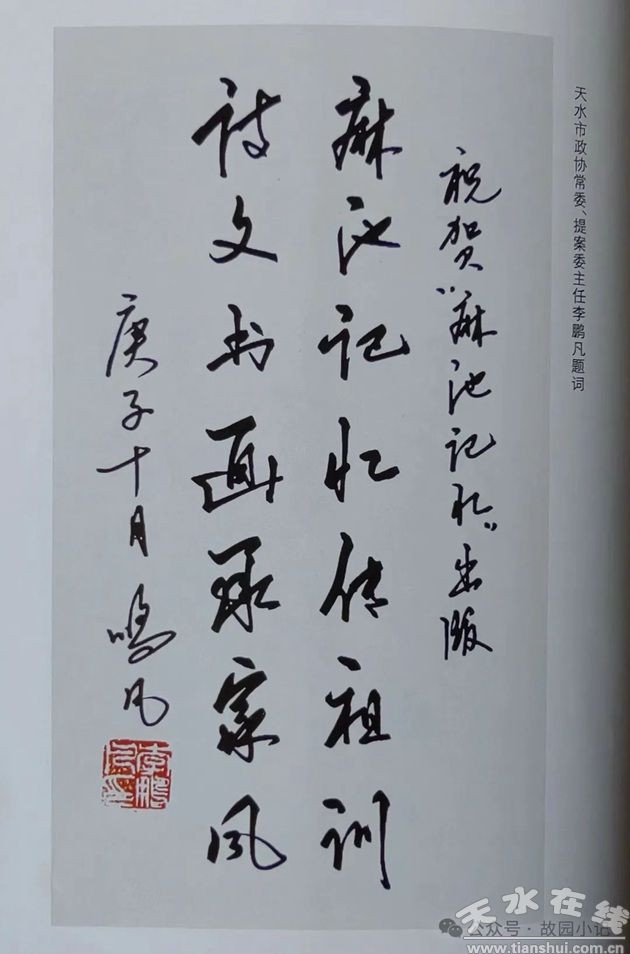 天水市政协常委、提案委主任李鹏凡题词
祝贺“麻池记忆”出版
麻池记忆传祖训
诗文书画承家风
庚子十月 鹏凡
李鹏凡印
公众号·故园小记
天水在线
www.tianshui.com.cn